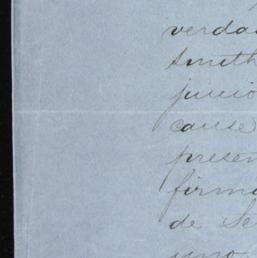 verda
Smith
juicio
cause
presen
firma
de Se
uno